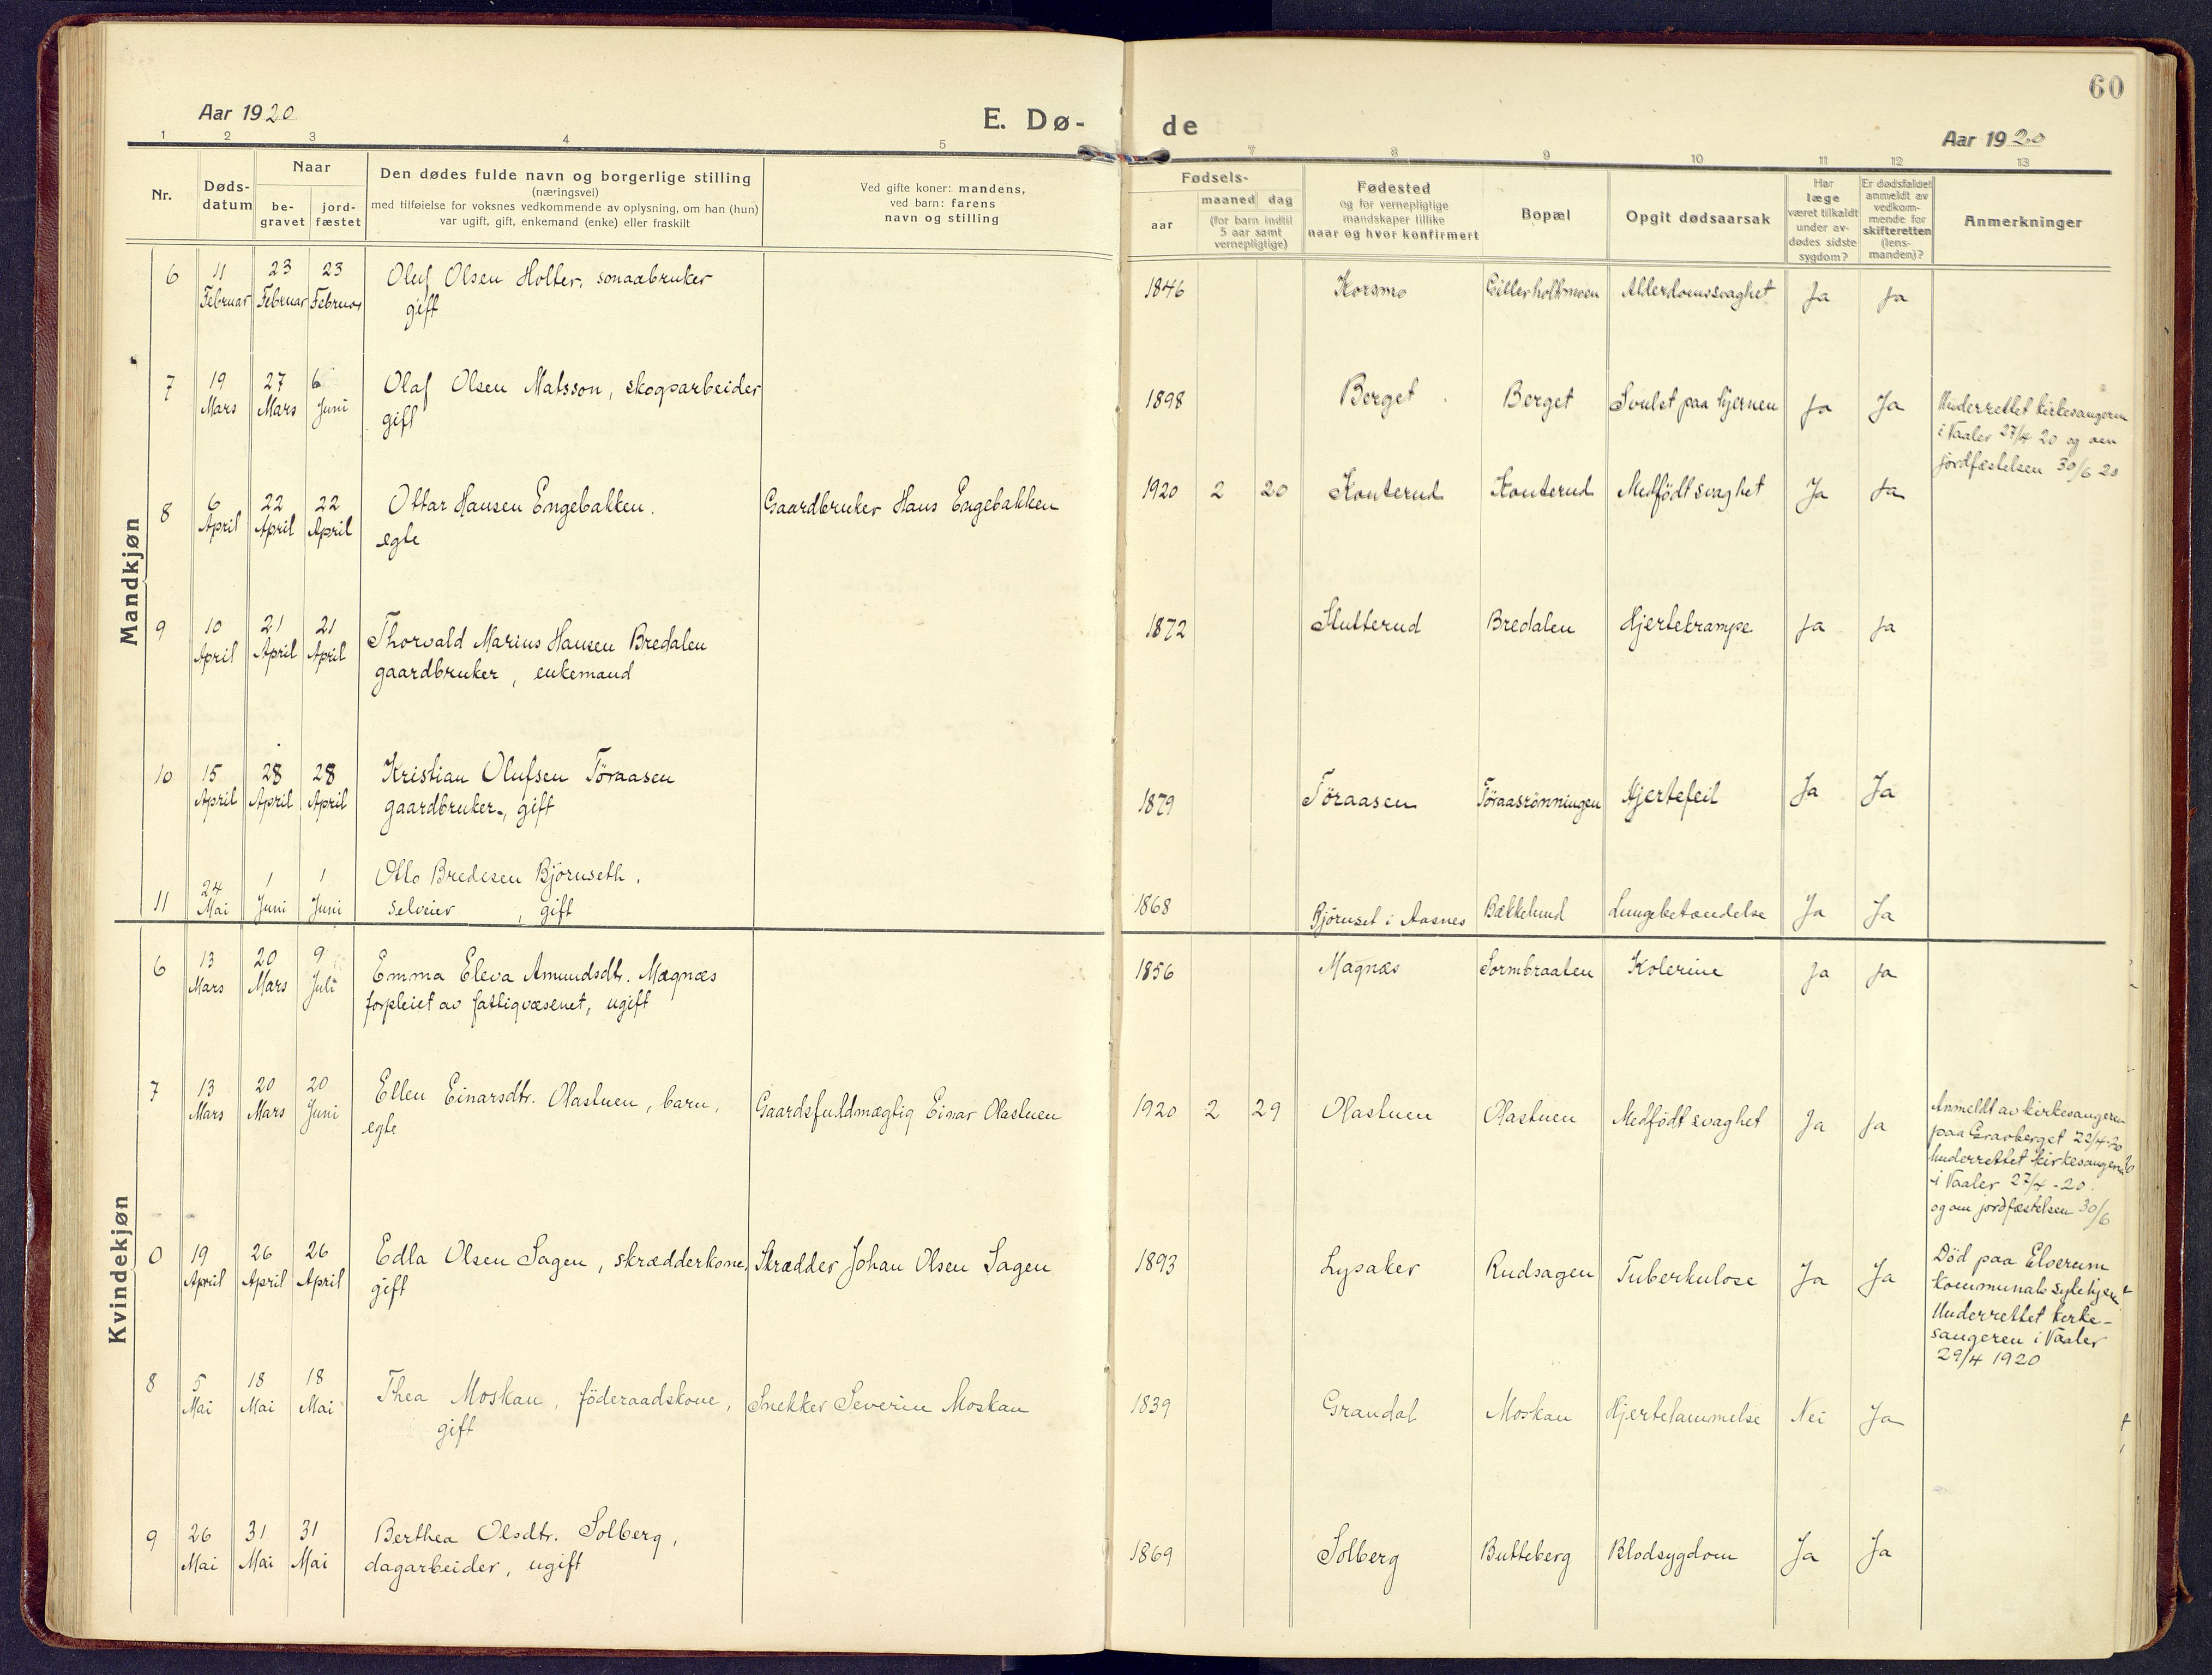 60
Aar 1920
E. Dø-
de
Aar 1920
1 2 3 4 5 7 8 9 10 11 12 13
Nr.
Døds-
datum
Naar
be-
gravet
jord-
fæstet
Den dødes fulde navn og borgerlige stilling
(næringsvei)
med tilføielse for voksnes vedkommende av oplysning, om han (hun)
var ugift, gift, enkemand (enke) eller fraskilt
Ved gifte koner: mandens,
ved barn: farens
navn og stilling
Fødsels-
aar
maaned dag
(for barn indtil
5 aar samt
vernepligtige)
Fødested
og for vernepligtige
mandskaper tillike
naar og hvor konfirmert
Bopæl
Opgit dødsaarsak
Har
læge
været tilkaldt
under av-
dødes sidste
sygdom?
Er dødsfaldet
anmeldt av
vedkom-
mende for
skifteretten
(lens-
manden)?
Anmerkninger
Mandkjøn
6 11 23 23 Oluf Olsen Holter, sonaabruker 1846 Korsmo Gillerholtmoen Alderdomssvaghet Ja Ja
Februar Februar Februar gift
7 19 27 6 Olaf Olsen Matsson, skogsarbeider 1898 Berget Berget Svulst paa hjernen Ja Ja Underrettet kirkesangeren
Mars Mars Juni gift i Vaaler 27/4 20 og om
jordfæstelsen 30/6 20
8 6 22 22 Ottar Hansen Engebakken. Gaardbruker Hans Engebakken 1920 2 20 Konterud Konterud Medfödt svaghet Ja Ja
April April April egte
9 10 21 21 Thorvald Marius Hansen Bredalen 1872 Slutterud Bredalen Hjertekrampe Ja Ja
April April April gaardbruker, enkemand
10 15 28 28 Kristian Olufsen Töraasen 1879 Töraasen Töraasrönningen Hjertefeil Ja Ja
April April April gaardbruker, gift
11 24 1 1 Otto Bredesen Björnseth. 1868 Björnset i Aasnes Bækkelund Lungebetændelse Ja Ja
Mai Juni Juni selveier, gift
Kvindekjøn
6 13 20 9 Emma Eleva Amundsdtr. Magnæs 1856 Magnæs Sormbraaten Kolerine Ja Ja
Mars Mars Juli forpleiet av fattigvæsenet, ugift
7 13 20 20 Ellen Einarsdtr. Olastuen, barn, Gaardsfuldmægtig Einar Olastuen 1920 2 29 Olastuen Olastuen Medfödt svaghet Ja Ja Anmeldt av kirkesangeren
Mars Mars Juni egte paa Gravberget 22/4-20
Underrettet kirkesangeren
i Vaaler 27/4-20.
og om jordfæstelsen 30/6
0 19 26 26 Edla Olsen Sagen, skrædderkone, Skrædder Johan Olsen Sagen 1893 Lysaker Rudsagen Tuberkulose Ja Ja Död paa Elverum
April April April gift kommunale sykehjem
Underrettet kirke-
sangeren i Vaaler
29/4 1920
8 5 18 18 Thea Moskau, föderaadskone, Snekker Severin Moskau 1839 Grandal Moskau Hjertelammelse Nei Ja
Mai Mai Mai gift
9 26 31 31 Berthea Olsdtr. Solberg, 1869 Solberg Butteberg Blodsygdom Ja Ja
Mai Mai Mai dagarbeider, ugift